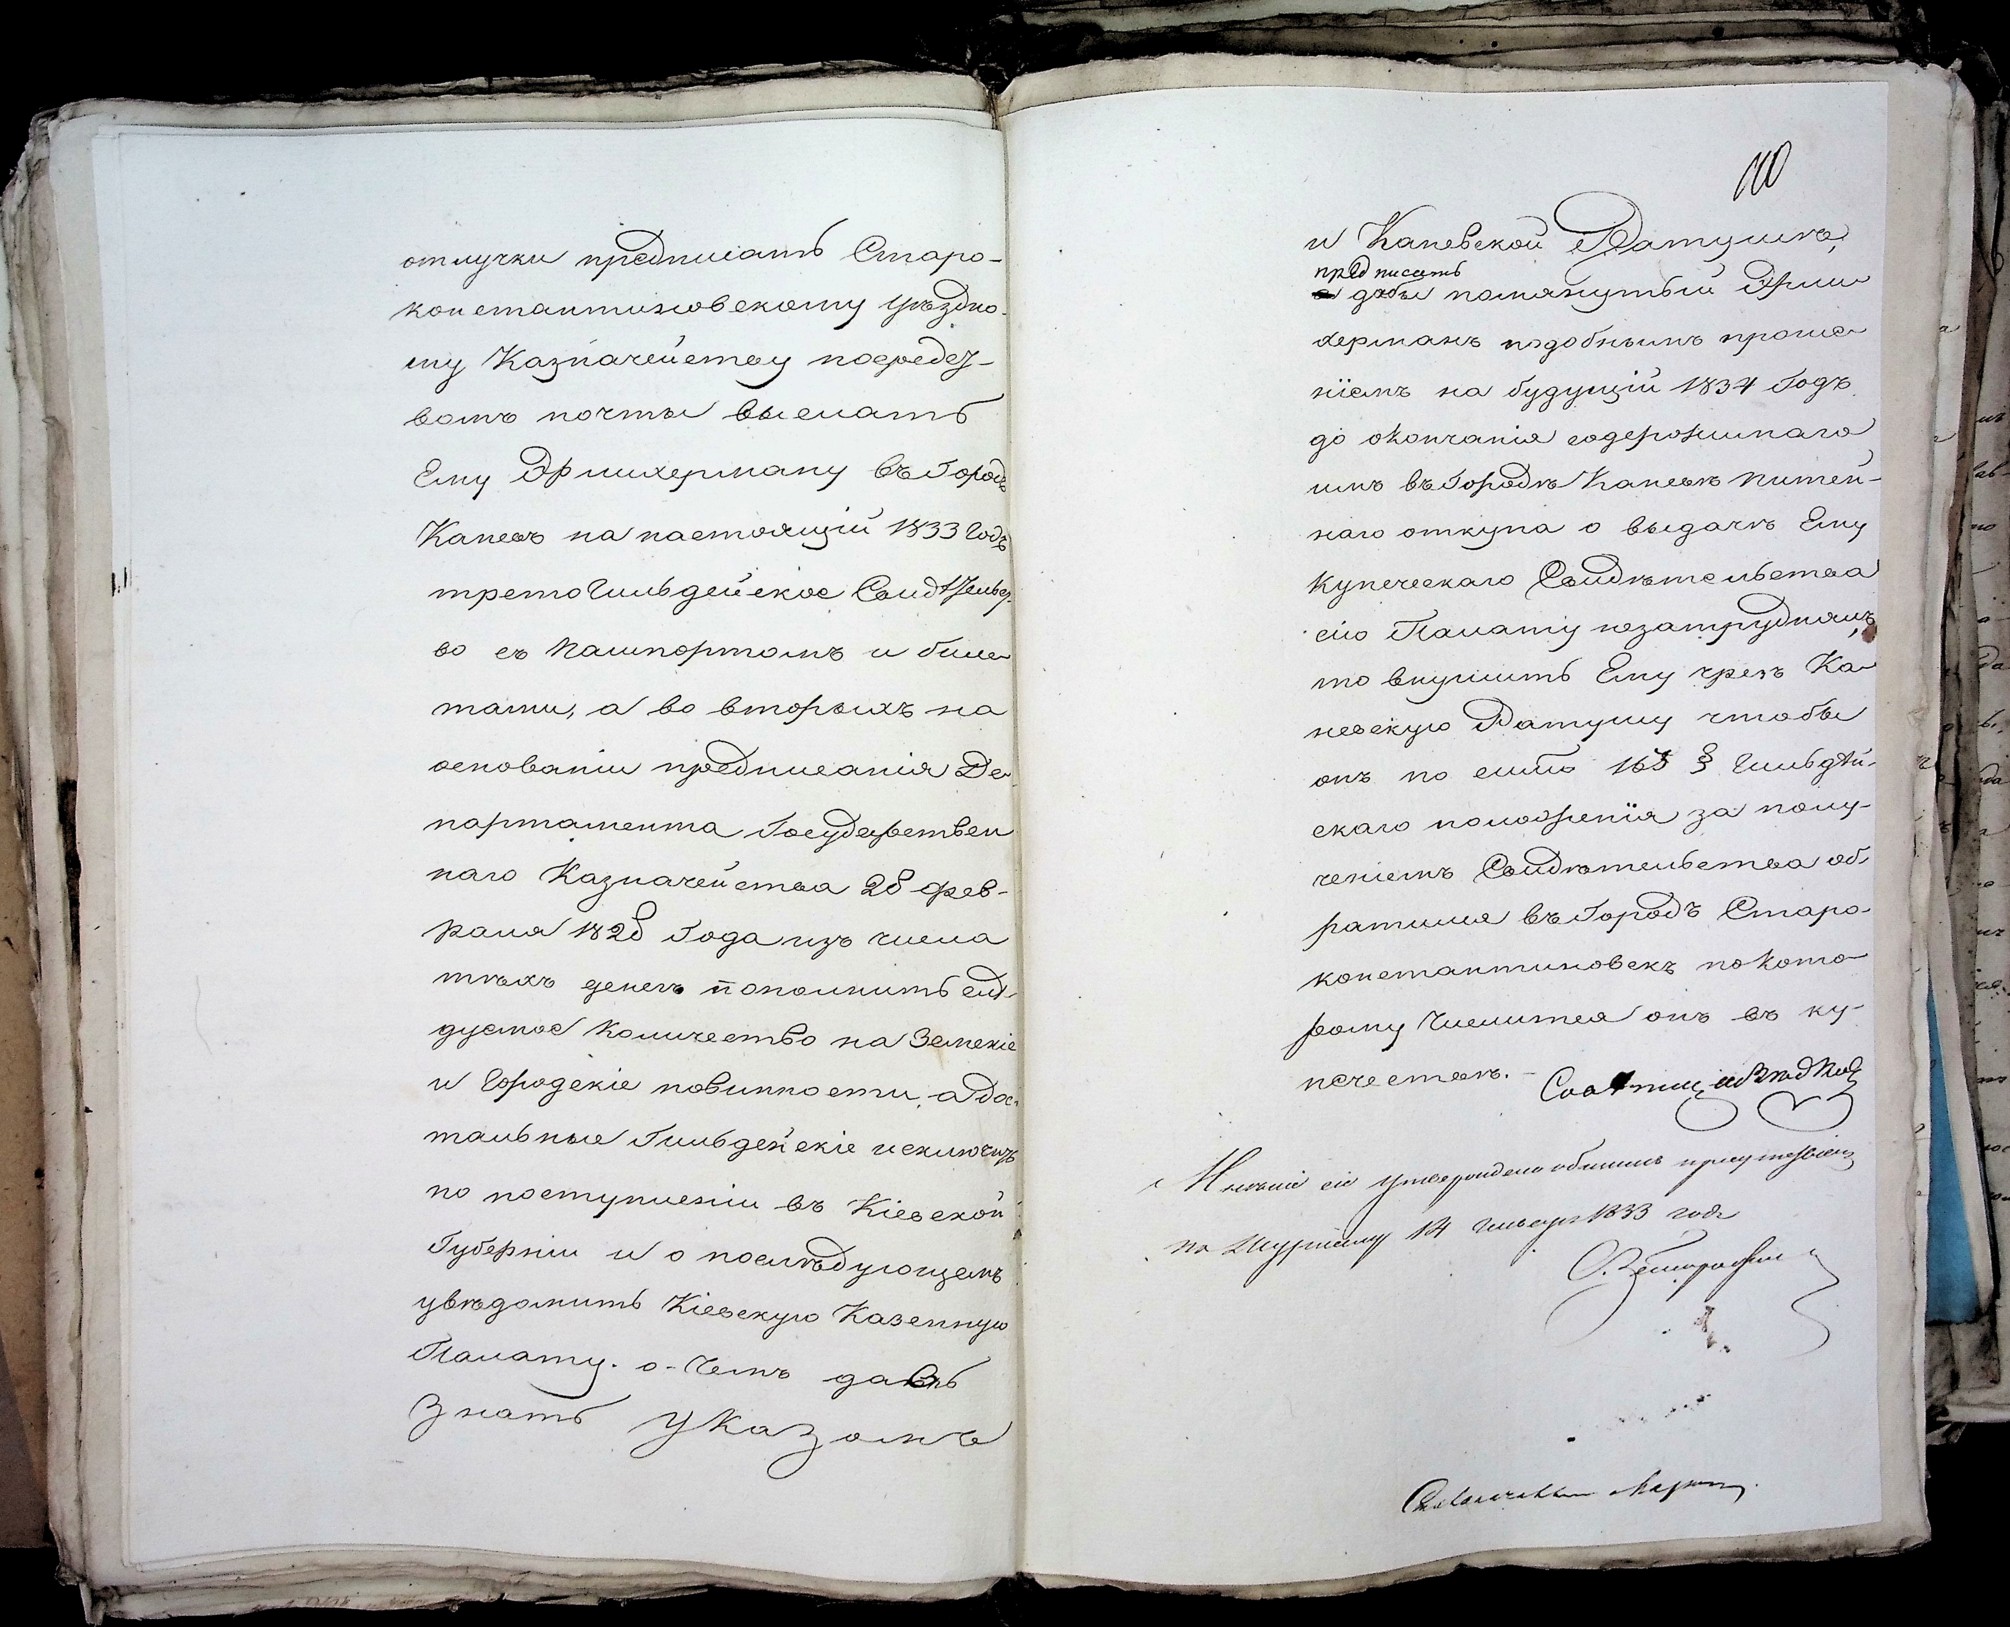 отлучки предписать Старо-
константиновскому Уѣздно-
му Казначейству посредст-
вомъ почты выслать
Ему Эршхерману въ Городъ
Каневъ на настоящій 1833 Годъ
третогильдейское Свидѣтельст-
во съ пашпортомъ и биле
тами, а во вторыхъ на
основаніи предписанія Де-
партамента Государствен
наго Казначейства 28 фев-
раля 1828 Года изъ числа
тѣхъ денегъ пополнить слѣ-
дуемое количество на Земскіе
и Городскіе повинности, а дос-
тальные Гильдейскіе исключить
по поступленіи въ Кіевской
Губерніи и о послѣдующемъ
увѣдомить Кіевскую Казенную
Палату. о чемъ дать
знать указомъ
110
и Каневской Ратушѣ,
предписать
дабы помянутый Эрш
херманъ подобнымъ проше
ніемъ на будущій 1834 Годъ
до окончанія содержимаго
имъ въ Городѣ Каневѣ питей-
наго откупа о выдачѣ Ему
купеческаго Свидѣтельства
сію Палату незатруднялъ,
то внушить Ему чрезъ Ка
невскую Ратушу чтобы
онъ по силѣ 165 § Гильдѣй-
скаго положенія за полу-
ченіемъ Свидѣтельства об-
ратился въ Городъ Старо-
константиновскъ по кото
рому числится онъ въ ку-
печествѣ.
Мнѣніе сіе утверждено общимъ присутствіемъ
по Журналу 14 Генваря 1833 года